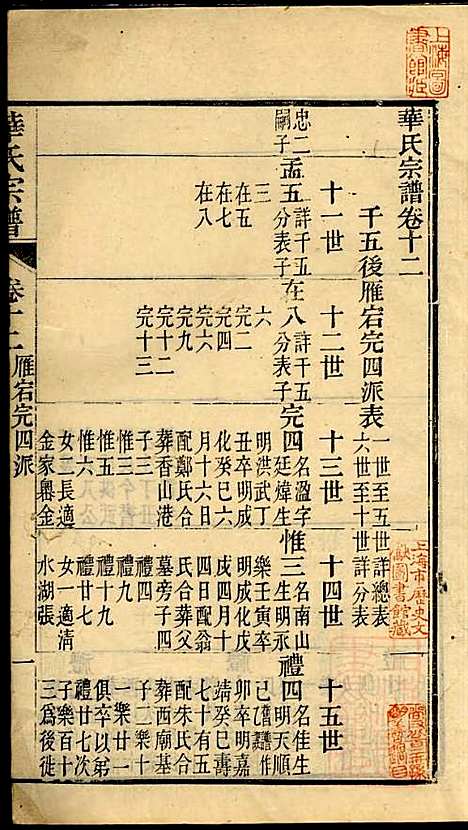 華氏宗譜卷十二
千五後雁宕完四派表
一世至五世詳總表
六世至十世詳分表
十一世
十二世
十三世
十四世
十五世
忠二
嗣子
孟五
詳千五
分表子
三
在五
在七
在八
在八
詳千五
分表子
六
完二
完四
完六
完九
完十二
完十三
完四
名溫字
廷煒生
明洪武丁
丑卒明成
化癸巳六
月十六日
配鄭氏合
葬香山港
子三
惟三
惟五
惟六
女一長適
金家嶴金
惟三
名南山
生明永
樂壬寅卒
明成化戊
戌四月十
四日配翁
氏合葬父
墓旁子四
禮四
禮九
禮十九
禮廿七
女一適清
水湖張
禮四
名佳生
明天順
己酉卒
卯卒明嘉
靖癸巳壽
七十有五
配朱氏合
葬西廟基
子二樂十
一樂廿一
俱卒以弟
禮廿七次
子樂百十
三爲後徙
華氏宗譜
卷十二
雁宕完四派
一
上海圖書館藏
上海市歷史文獻圖書館藏